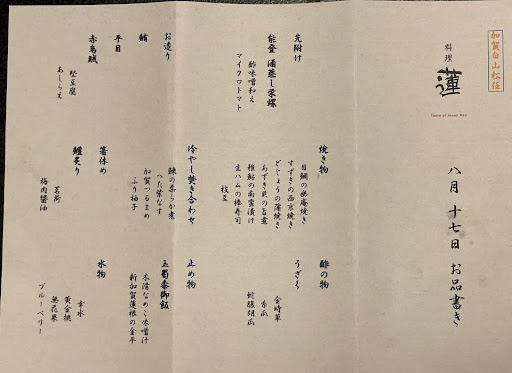 加賀白山松任
料理
蓮
八月 十七日 お品書き
先附け
能登 酒蒸し栄螺
酢味噌和え
マイクロトマト
お造り
鮪
平目
赤烏賊
堅豆腐
あしらえ
焼き物
目鯛の幽庵焼き
すずきの西京焼き
どじょうの蒲焼き
あずき貝の旨煮
稚鮎の南蛮漬け
生ハムの棒寿司
枝豆
冷やし焚き合わせ
鰊の柔らか煮
へた紫なす
加賀つるまめ
ふり柚子
箸休め
鱧炙り
茗荷
梅肉醤油
酢の物
うざく
金時草
糸瓜
蛇腹胡瓜
止め物
玉蜀黍御飯
木滑なめこ味噌汁
新加賀蓮根の金平
水物
幸水
黄金桃
無花果
ブルーベリー